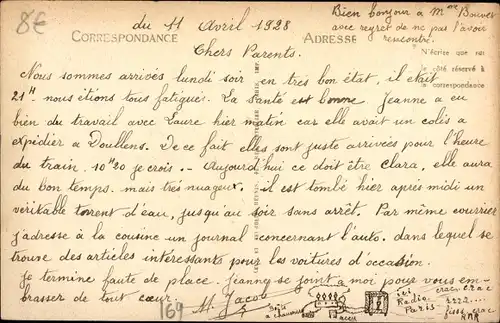 8€
du 11 Avril 1928
Bien bonjour à Mme Bouvet
avec regret de ne pas l'avoir
rencontré.
CORRESPONDANCE
ADRESSE
N'écrire que sur
le côté réservé à
la correspondance
Chers Parents.
Nous sommes arrivés lundi soir en très bon état, il était
21H nous étions tous fatigués. La Santé est bonne Jeanne a eu
bien du travail avec Laure hier matin car elle avait un colis a
expédier a Doullens. De ce fait elles sont juste arrivées pour l'heure
du train. 10H20 je crois.. Aujourd'hui ce doit être Clara, elle aura
du bon temps. mais très nuageux. il est tombé hier après midi un
véritable torrent d'eau, jusqu'au soir sans arrêt. Par même courrier
j'adresse à la cousine un journal concernant l'auto. dans lequel se
trouve des articles intéressants pour les voitures d'occasion.
je termine faute de place. Jeanne se joint a moi pour vous em-
brasser de tout cœur.
169
M. Jacob
ici
Radio
Paris
crac. crac
crac.